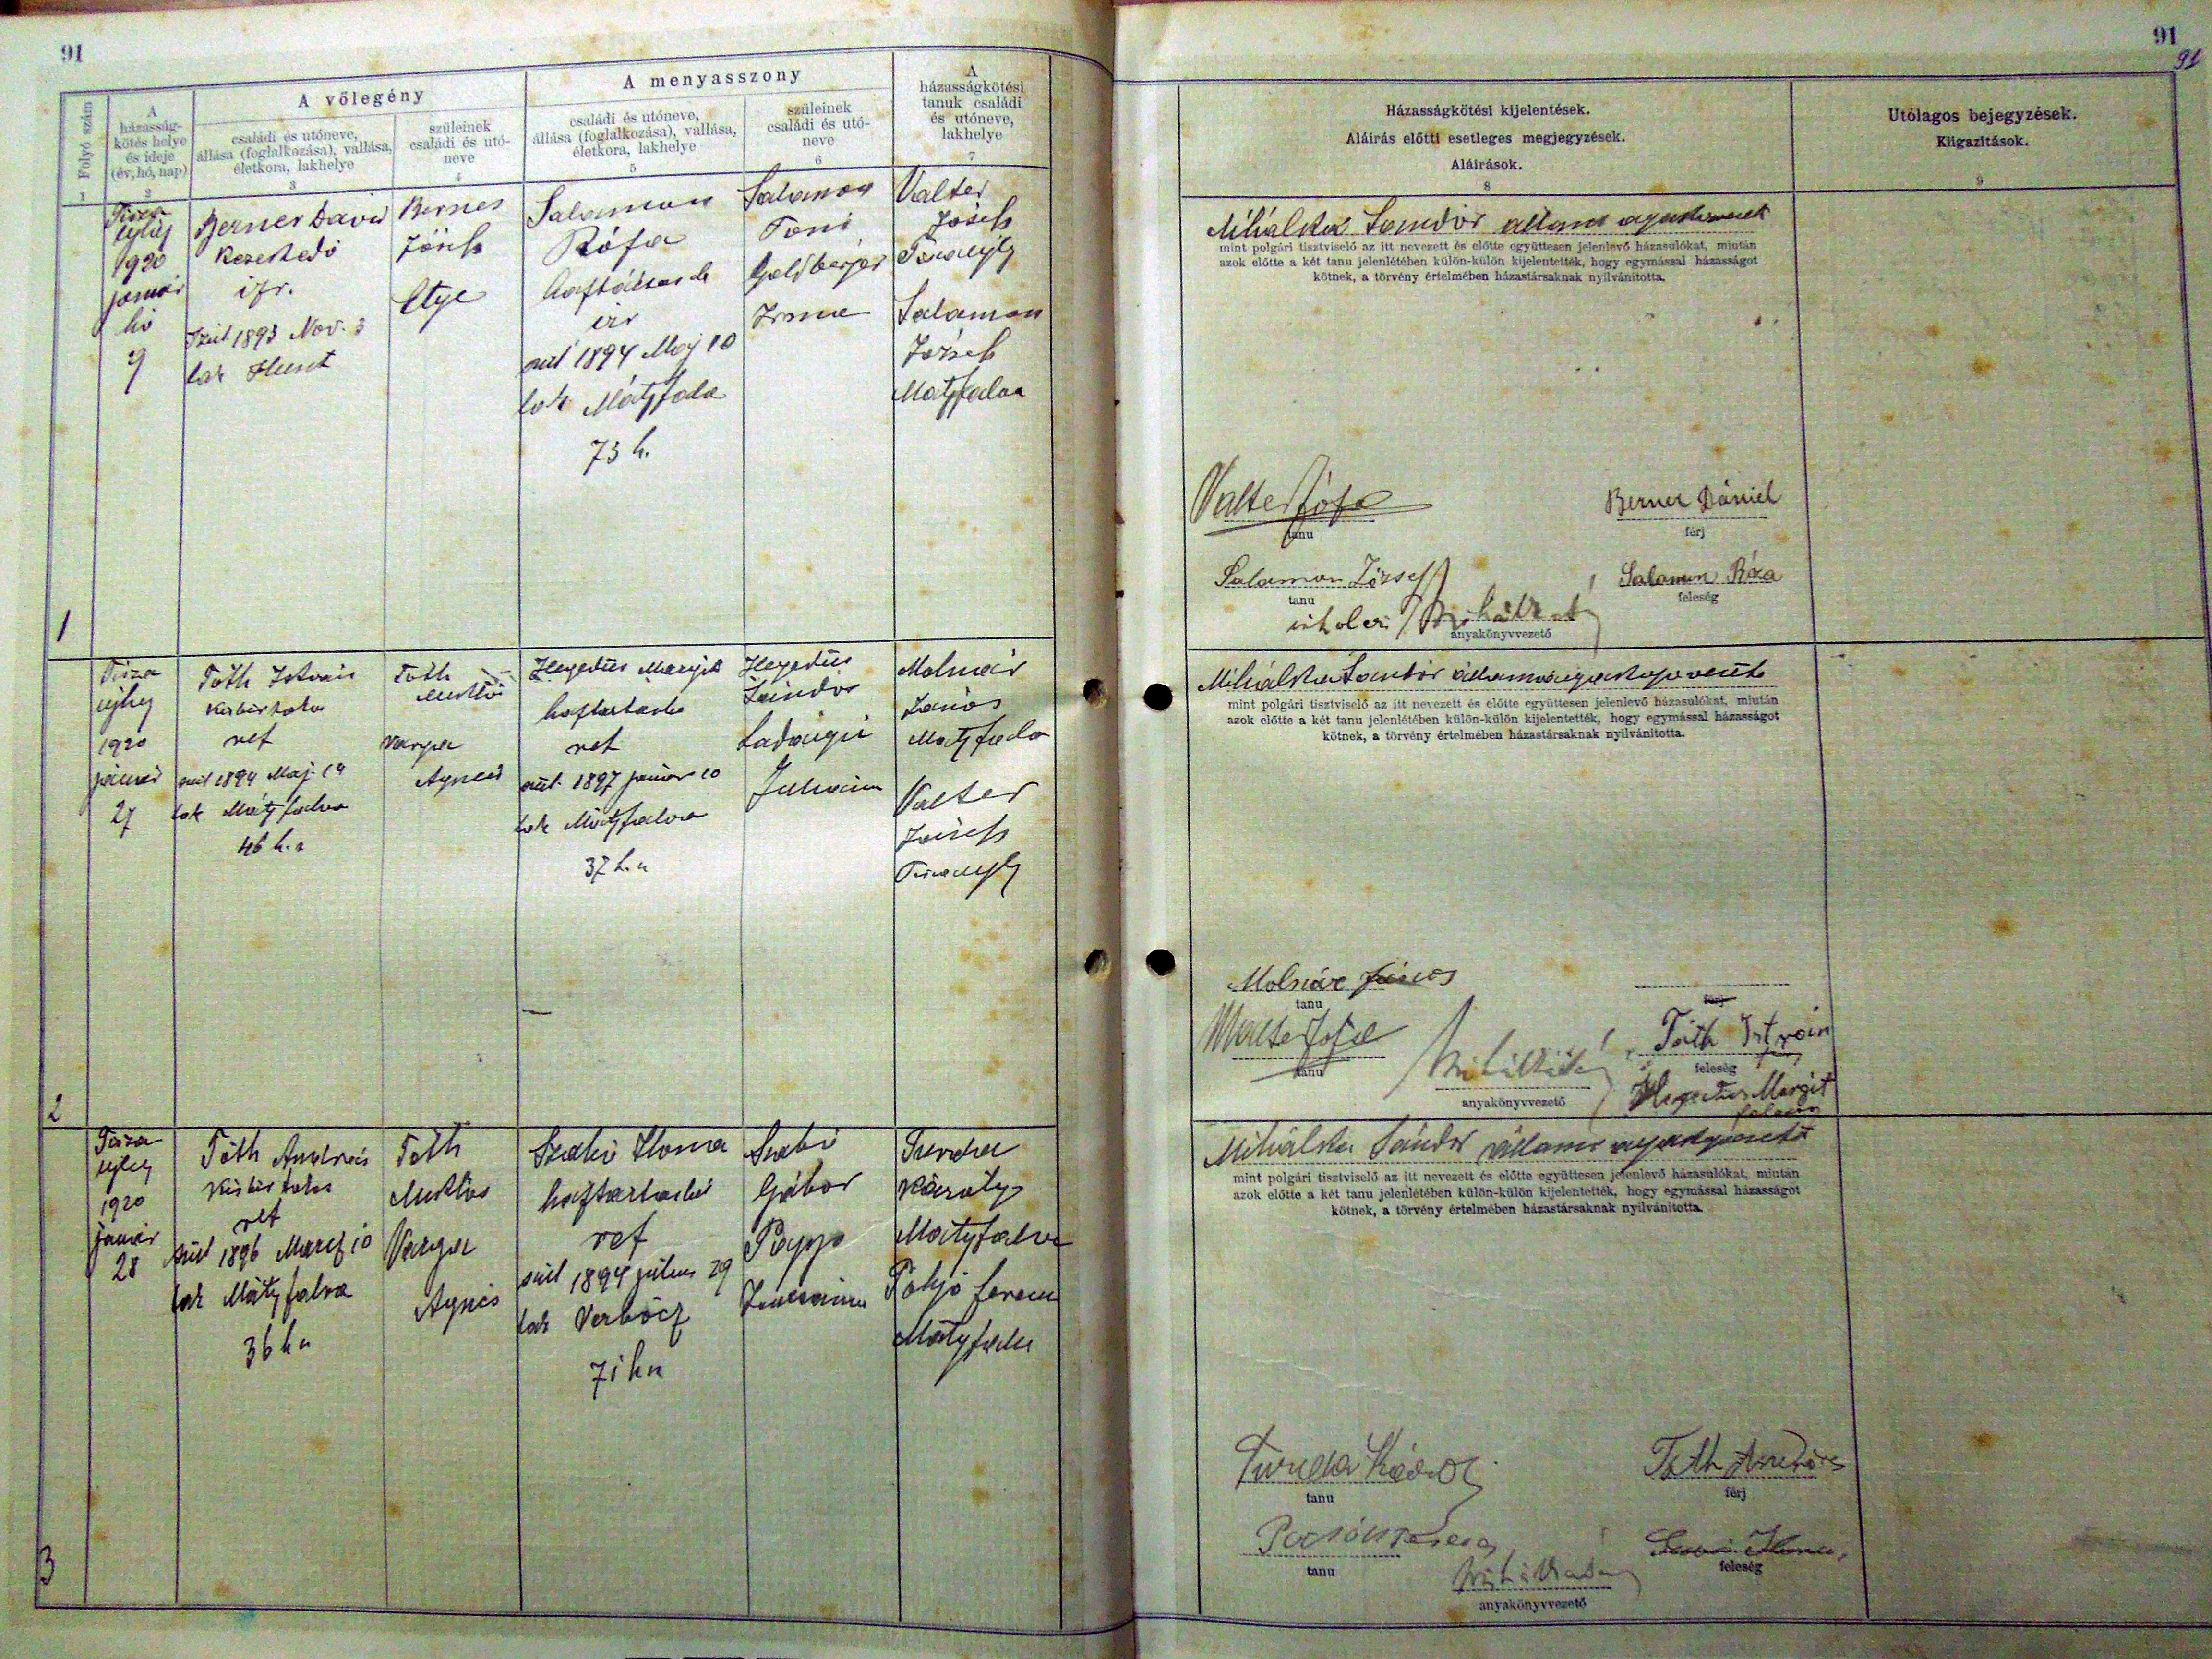 91
Folyó szám
A házasság-
kötés helye
és ideje
(év, hó, nap)
A vőlegény
családi és utóneve,
állása (foglalkozása), vallása,
életkora, lakhelye
szüleinek
családi és utó-
neve
A menyasszony
családi és utóneve,
állása (foglalkozása), vallása,
életkora, lakhelye
szüleinek
családi és utó-
neve
A
házasságkötési
tanuk családi
és utóneve,
lakhelye
1 2 3 4 5 6 7
1
Tisza
ujhely
1920
január
hó
9
Berner David
Kereskedő
izr.
szül 1893 Nov. 3
lak Huszt
Berner
József
Etye
Salamon
Róza
háztartásbeli
izr
szül 1894 Maj 10
lak Mátyfalva
73 h.
Salamon
Toni
Goldberger
Irma
Valter
József
Tiszaujhely
Salamon
József
Mátyfalva
2
Tisza
ujhely
1920
január
27
Tóth István
ref
szül 1894 Maj. 14
lak Mátyfalva
46 h.a
Tóth
Miklós
Varga
Ágnes
Hegedüs Margit
háztartásbeli
ref
szül. 1897 január 10
lak Mátyfalva
37 h.a
Hegedüs
Sándor
Juliánna
Molnár
János
Mátyfalva
Valter
József
Tiszaujhely
3
Tisza
ujhely
1920
január
28
Tóth András
ref
szül 1896 March 10
lak Mátyfalva
36 h.a
Tóth
Miklós
Varga
Ágnes
Szabó Ilona
háztartásbeli
ref
szül 1894 julius 29
lak Verbőcz
71 h.a
Szabó
Gábor
Papp
Zsuzsánna
Turda
Károly
Mátyfalva
Ferenc
Mátyfalva
91
91
Házasságkötési kijelentések.
Aláírás előtti esetleges megjegyzések.
Aláírások.
8
Utólagos bejegyzések.
Kiigazítások.
9
Mihálka Sándor állami
mint polgári tisztviselő az itt nevezett és előtte együttesen jelenlevő házasulókat, miután
azok előtte a két tanu jelenlétében külön-külön kijelentették, hogy egymással házasságot
kötnek, a törvény értelmében házastársaknak nyilvánította.
Valter József
tanu
Berner Dániel
férj
Salamon József
tanu
Salamon Róza
feleség
anyakönyvvezető
Mihálka Sándor állami
mint polgári tisztviselő az itt nevezett és előtte együttesen jelenlevő házasulókat, miután
azok előtte a két tanu jelenlétében külön-külön kijelentették, hogy egymással házasságot
kötnek, a törvény értelmében házastársaknak nyilvánította.
Molnár János
tanu
férj
Valter József
tanu
Tóth István
férj
feleség
Hegedüs Margit
feleség
anyakönyvvezető
Mihálka Sándor állami
mint polgári tisztviselő az itt nevezett és előtte együttesen jelenlevő házasulókat, miután
azok előtte a két tanu jelenlétében külön-külön kijelentették, hogy egymással házasságot
kötnek, a törvény értelmében házastársaknak nyilvánította.
Turda Károly
tanu
Tóth András
férj
tanu
Szabó Ilona
feleség
anyakönyvvezető